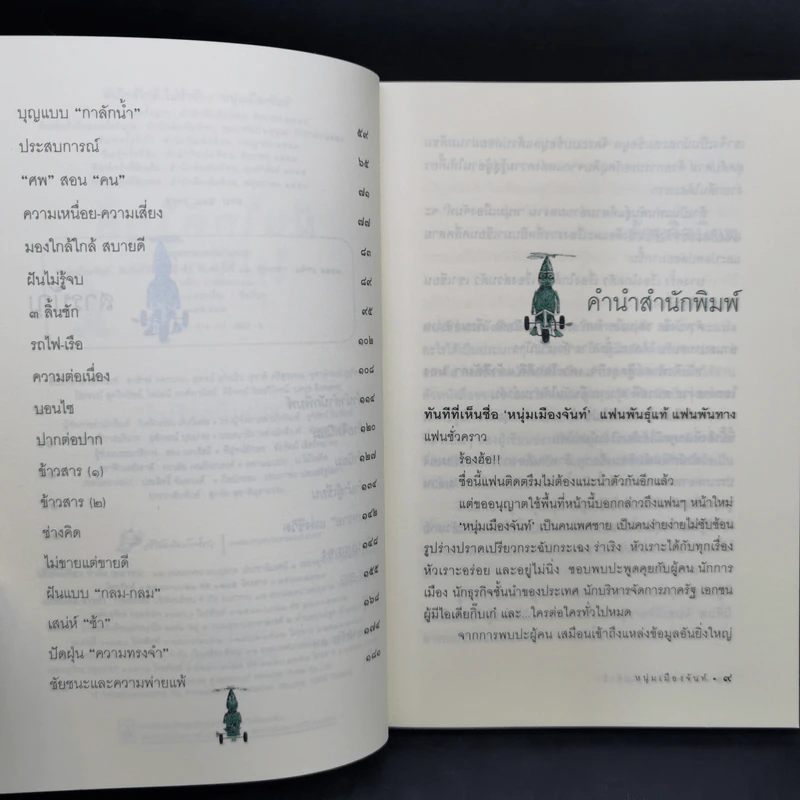 บุญแบบ “กาลักน้ำ”
๕๙
ประสบการณ์
๖๕
“ศพ” สอน “คน”
๗๑
ความเหนื่อย-ความเสี่ยง
๗๗
มองใกล้ใกล้ สบายดี
๘๓
ฝันไม่รู้จบ
๘๙
๓ ลิ้นชัก
๙๕
รถไฟ-เรือ
๑๐๒
ความต่อเนื่อง
๑๐๘
บอนไซ
๑๑๔
ปากต่อปาก
๑๒๐
ข้าวสาร (๑)
๑๒๗
ข้าวสาร (๒)
๑๓๔
ช่างคิด
๑๔๒
ไม่ขายแต่ขายดี
๑๔๘
ฝันแบบ “กลม-กลม”
๑๕๕
เสน่ห์ “ช้า”
๑๖๘
ปัดฝุ่น “ความทรงจำ”
๑๗๔
ชัยชนะและความพ่ายแพ้
๑๘๑
คำนำสำนักพิมพ์
ทันทีที่เห็นชื่อ ‘หนุ่มเมืองจันท์’ แฟนพันธุ์แท้ แฟนพันทาง
แฟนชั่วคราว
ร้องฮ้อ!!
ชื่อนี้แฟนติดตรึมไม่ต้องแนะนำตัวกันอีกแล้ว
แต่ขออนุญาตใช้พื้นที่หน้านี้บอกกล่าวถึงแฟนๆ หน้าใหม่
‘หนุ่มเมืองจันท์’ เป็นคนเพศชาย เป็นคนง่ายง่ายไม่ซับซ้อน
รูปร่างปราดเปรียวกระฉับกระเฉง ร่าเริง หัวเราะได้กับทุกเรื่อง
หัวเราะอร่อย และอยู่ไม่นิ่ง ชอบพบปะพูดคุยกับผู้คน นักการ
เมือง นักธุรกิจชั้นนำของประเทศ นักบริหารจัดการภาครัฐ เอกชน
ผู้มีไอเดียกิ๊บเก๋ และ...ใครต่อใครทั่วไปหมด
จากการพบปะผู้คน เสมือนเข้าถึงแหล่งข้อมูลอันยิ่งใหญ่
หนุ่มเมืองจันท์ • ๙